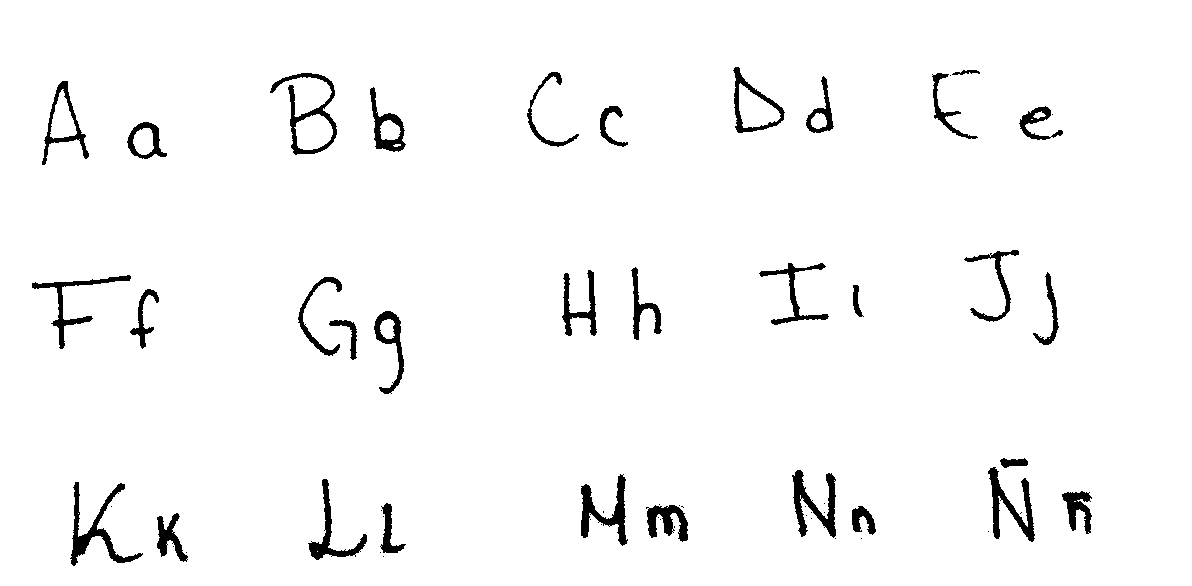 Aa Bb Cc Dd Ee
Ff Gg Hh Iı Jȷ
Kk Ll Mm Nn Ññ